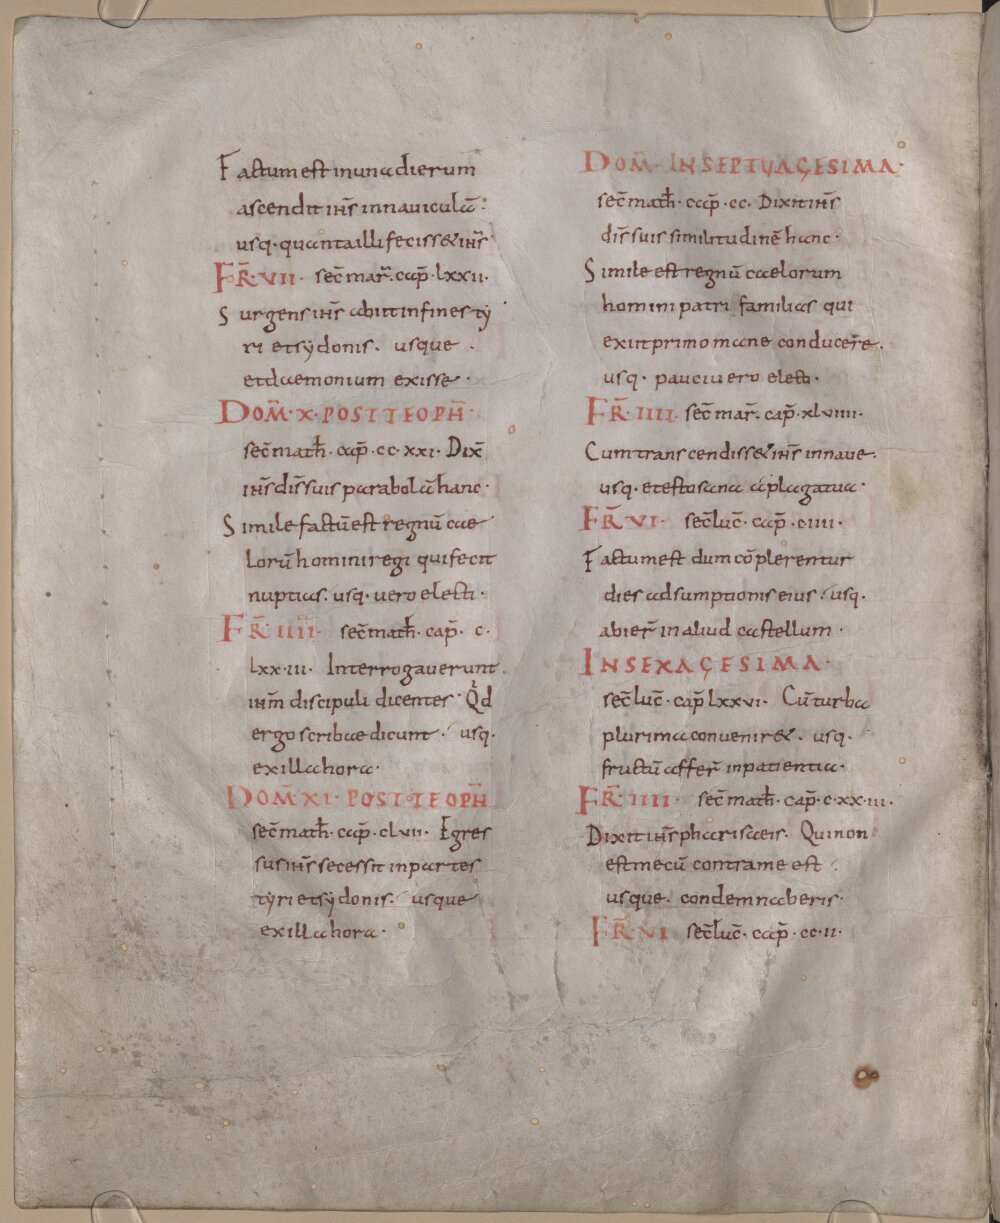 Factum est in una dierum
ascendit ih̅s in naviculā·
usq· quanta illi fecisset ih̅s
FR̅·VII· sec̅ mar̅· cap̅· lxxii·
Surgens ih̅s abiit in fines ty
ri et sydonis· usque·
et daemonium exisse·
DOM̅·X·POST TEOPH̅·
sec̅ math̅· cap̅· cc·xxi· Dix̅
ih̅s dis̅ suis parabolā hanc·
Simile factū est regnū cae
lorū homini regi qui fecit
nuptias· usq· vero electi·
FR̅·IIII· sec̅ math̅· cap̅· c·
lxx·iii· Interrogaverunt
ih̅m discipuli dicentes· Qd̅
ergo scribae dicunt· usq·
ex illa hora·
DOM̅·XI·POST·TEOPH̅
sec̅ math̅· cap̅· clvii· Egres
sus ih̅s secessit in partes
tyri et sydonis· usque
ex illa hora·
DOM̅·IN SEPTUAGESIMA·
sec̅ math̅· cap̅· cc· Dixit ih̅s
dis̅ suis similitudinē hanc·
Simile est regnū caelorum
homini patri familias qui
exiit primo mane conducere·
usq· pauci vero electi·
FR̅·IIII· sec̅ mar̅· cap̅· xlviiii·
Cum transcendisset ih̅s in nave·
usq· et esto sana a plaga tua·
FR̅·VI· sec̅ luc̅· cap̅· ciiii·
Factum est dum cōplerentur
dies adsumptionis eius· usq·
abier̅ in aliud castellum·
IN SEXAGESIMA·
sec̅ luc̅· cap̅ lxxvi· Cū turba
plurima conveniret· usq·
fructū affer̅ in patientia·
FR̅·IIII· sec̅ math̅· cap̅· c·xx·iii·
Dixit ih̅s pharisaeis· Qui non
est mecū contra me est·
usque· condemnaberis·
FR̅·VI sec̅ luc̅· cap̅· cc·ii·